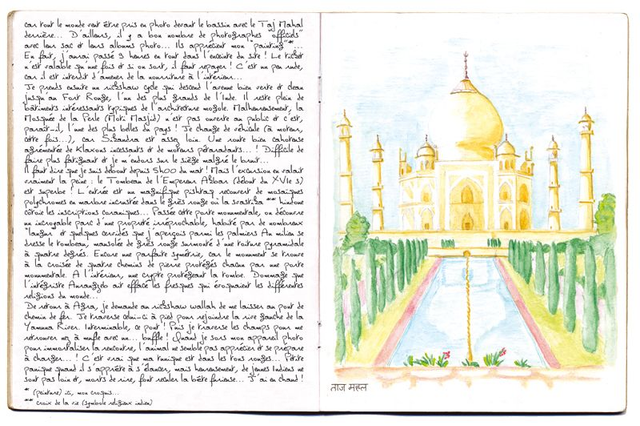 car tout le monde veut être pris en photo devant le bassin avec le Taj Mahal
derrière... D'ailleurs, il y a bon nombre de photographes "officiels"
avec leur sac et leurs albums photo... Ils apprécient mon "painting"*...
En fait, j'aurai passé 9 heures en tout dans l'enceinte du site ! Le ticket
n'est valable qu'une fois et si on sort, il faut repayer ! C'est un peu rude,
car il est interdit d'amener de la nourriture à l'intérieur...
Je prends ensuite un rickshaw cycle qui descend l'avenue bien verte et clean
jusqu'au Fort Rouge, l'un des plus grands de l'Inde. Il reste plein de
bâtiments intéressants typiques de l'architecture moghole. Malheureusement, la
Mosquée de la Perle (Moti Masjid) n'est pas ouverte au public et c'est,
paraît-il, l'une des plus belles du pays ! Je change de véhicule (à moteur,
cette fois...), car Sikandra est assez loin. Une route bien cahoteuse
agrémentée de Klaxons incessants et de moteurs pétaradants... ! Difficile de
faire plus fatigant et je m'endors sur le siège malgré le bruit...
Il faut dire que je suis debout depuis 5h00 du mat ! Mais l'excursion en valait
vraiment la peine : le Tombeau de l'Empereur Akbar (début du XVIIe s)
est superbe ! L'entrée est un magnifique pishtaq recouvert de mosaïques
polychromes en marbre incrustée dans le grès rouge où la svastika** hindoue
côtoie les inscriptions coraniques... Passée cette porte monumentale, on découvre
un incroyable parc d'une propreté irréprochable, habité par de nombreux
langurs et quelques cervidés que j'aperçois parmi les palmiers. Au milieu se
dresse le tombeau, mausolée de grès rouge surmonté d'une toiture pyramidale
à quatre degrés. Encore une parfaite symétrie, car le monument se trouve
à la croisée de quatre chemins de pierre protégés chacun par une porte
monumentale. A l'intérieur, une crypte protégeant la tombe. Dommage que
l'intégriste Aurangzeb ait effacé les fresques qui évoquaient les différentes
religions du monde...
De retour à Agra, je demande au rickshaw wallah de me laisser au pont de
chemin de fer. Je traverse celui-ci à pied pour rejoindre la rive gauche de la
Yamuna River. Interminable, ce pont ! Puis je traverse les champs pour me
retrouver nez à mufle avec un... buffle ! Quand je sors mon appareil photo
pour immortaliser la rencontre, l'animal ne semble pas apprécier et se prépare
à charger... ! C'est vrai que ma tunique est dans les tons rouges... Petite
panique quand il s'apprête à s'élancer, mais heureusement, de jeunes Indiens ne
sont pas loin et, morts de rire, font reculer la bête furieuse... J'ai eu chaud !
* (peinture) ici, mon croquis...
** Croix de la vie (symbole religieux indien)
ताज महल